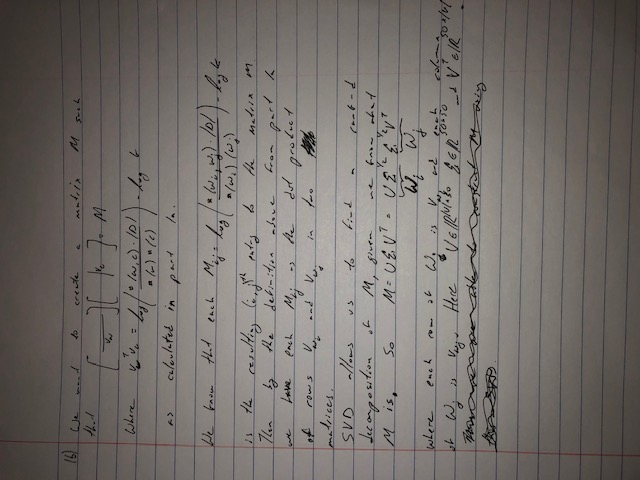 1b) We want to create a matrix M such
that [ — v_w ] [ | v_c ] = M
Where v_w^T v_c = log( #(w,c)·|D| / #(w) #(c) ) - log k
as calculated in part 1a.
We know that each M_ij = log( #(w_i, w_j)·|D| / #(w_i) (w_j) ) - log k
is the resulting (i,j)^th entry to the matrix M
Then by the definition above from part 1a
we have each M_ij as the dot product
of rows v_wi and v_wj in two
matrices.
SVD allows us to find a rank-d
decomposition of M, given we know what
M is. So M = UΣV^T = UΣ^1/2 Σ^1/2 V^T
W_i W_j
where each row of W_i is v_wi and each column
of W_j is v_wj. Here U∈ℝ^|V|×50 Σ∈ℝ^50×50 and V^T∈ℝ^50×|V|.